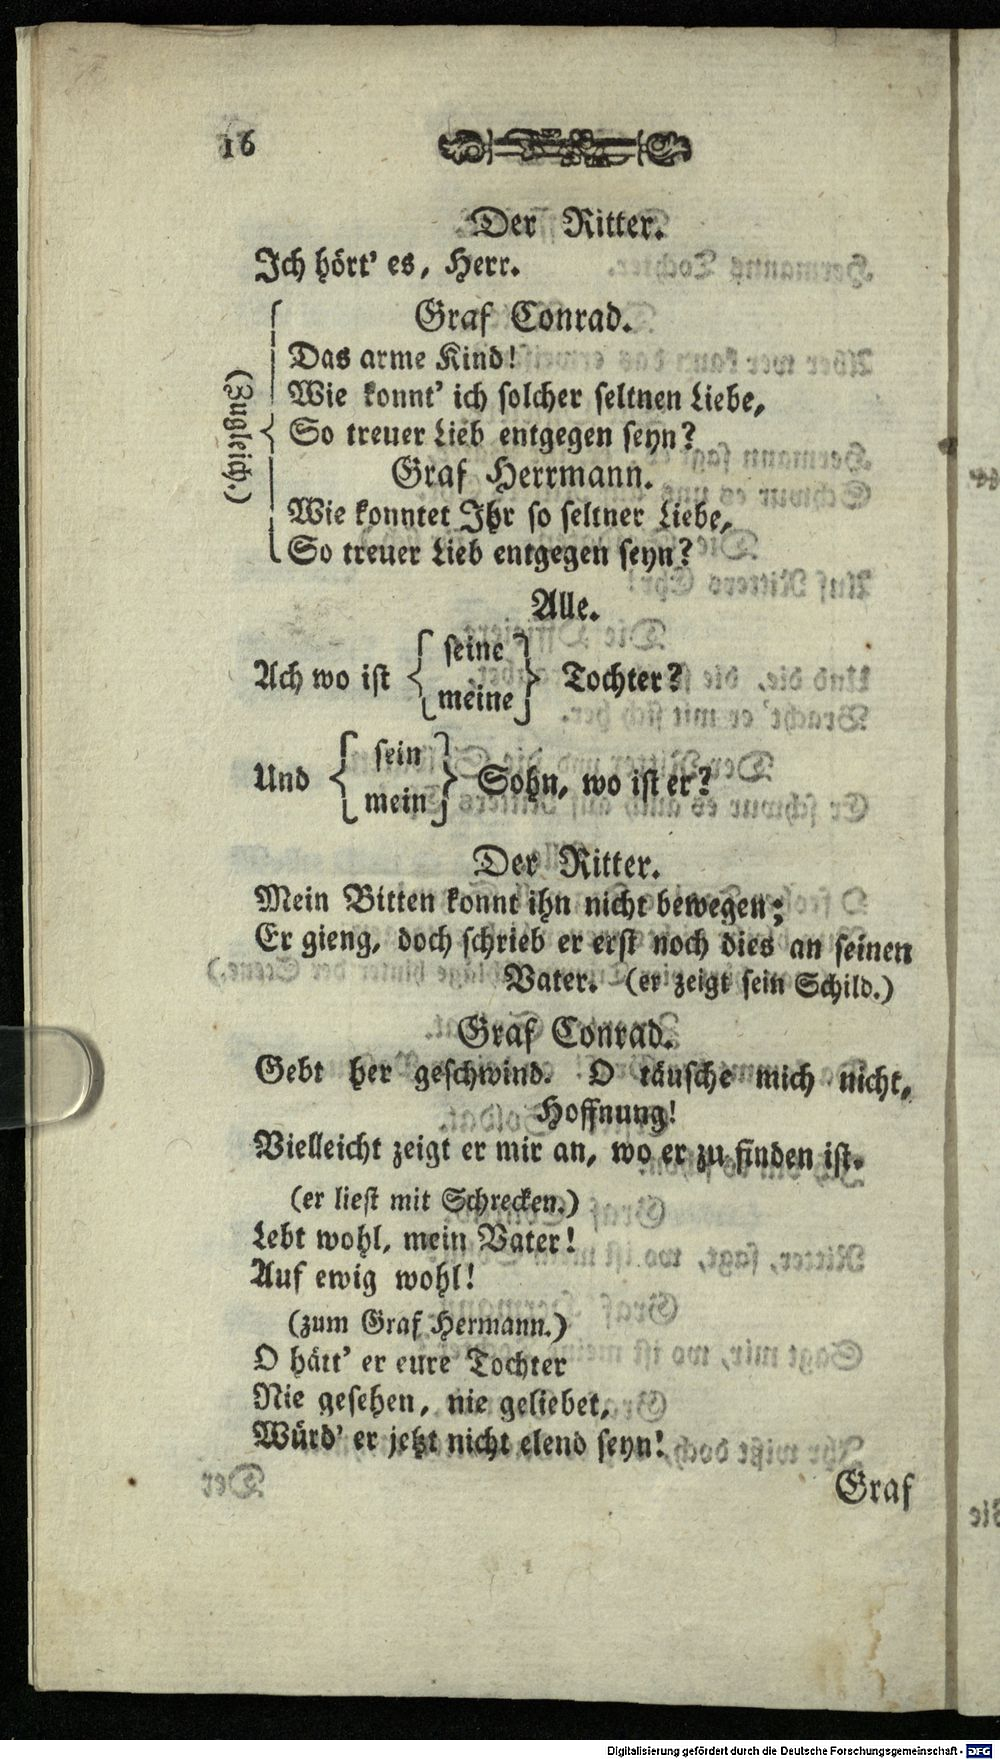 16
Der Ritter.
Ich hört' es, Herr.
(Zugleich.)
Graf Conrad.
Das arme Kind!
Wie konnt' ich solcher seltnen Liebe,
So treuer Lieb entgegen seyn?
Graf Herrmann.
Wie konntet Ihr so seltner Liebe,
So treuer Lieb entgegen seyn?
Alle.
Ach wo ist { seine meine } Tochter?
Und { sein mein } Sohn, wo ist er?
Der Ritter.
Mein Bitten konnt ihn nicht bewegen;
Er gieng, doch schrieb er erst noch dies an seinen
Vater. (er zeigt sein Schild.)
Graf Conrad.
Gebt her geschwind. O täusche mich nicht,
Hoffnung!
Vielleicht zeigt er mir an, wo er zu finden ist.
(er liest mit Schrecken.)
Lebt wohl, mein Vater!
Auf ewig wohl!
(zum Graf Hermann.)
O hätt' er eure Tochter
Nie gesehen, nie geliebet,
Würd' er jetzt nicht elend seyn!
Graf
Digitalisierung gefördert durch die Deutsche Forschungsgemeinschaft - DFG